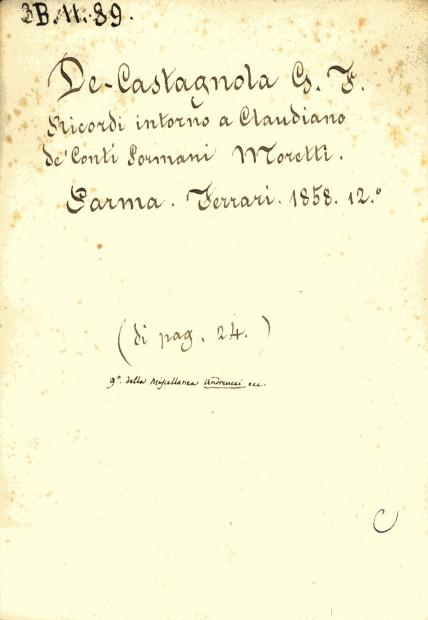 3B.11.89.
De-Castagnola G. F.
Ricordi intorno a Claudiano
de' Conti Sormani Moretti.
Parma. Ferrari. 1858. 12.°
(di pag. 24.)
9°. della Miscellanea Andreucci ecc.
C